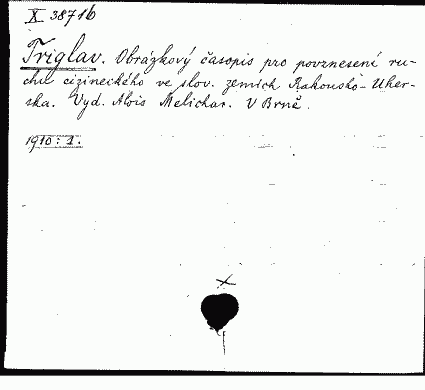 X 38716
Triglav. Obrázkový časopis pro povznesení ru-
chu cizineckého ve slov. zemích Rakousko-Uher-
ska. Vyd. Alois Melichar. V Brně.
1910: 1.